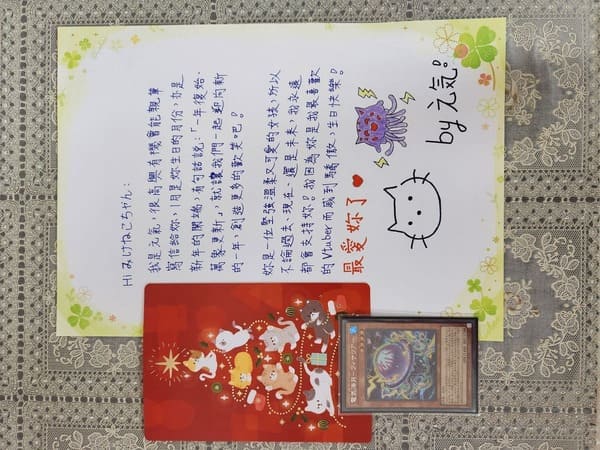 Hi みけねこちゃん：
我是元氣，很高興有機會能親筆
寫信給妳，1月是妳生日的月份，亦是
新年的開端，有句話說：「一年復始，
萬象更新」，就讓我們一起迎向新
的一年，創造更多的歡笑吧！
妳是一位堅強溫柔又可愛的女孩，所以
不論過去、現在、還是未來，我永遠
都會支持妳！我因為妳是我最喜歡
的Vtuber而感到驕傲，生日快樂！
最愛妳了
by 元氣！
電気海月－フィサリア－